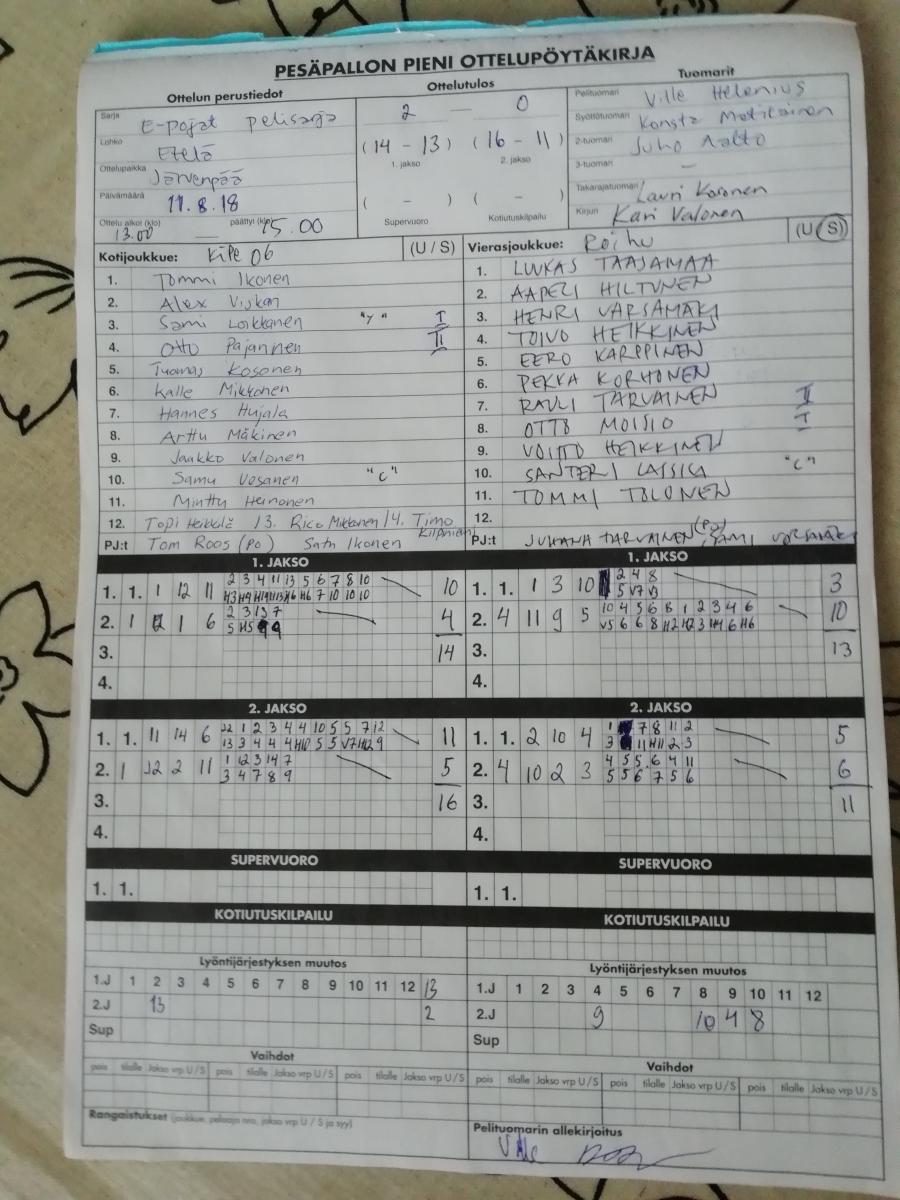 PESÄPALLON PIENI OTTELUPÖYTÄKIRJA
Ottelun perustiedot
Ottelutulos
Tuomarit
Sarja E-pojat pelisarja
Lohko Etelä
Ottelupaikka Järvenpää
Päivämäärä 11.8.18
Ottelu alkoi (klo) 13.00 päättyi (klo) 15.00
2 — 0
(14 - 13) (16 - 11)
1. jakso 2. jakso
( - ) ( - )
Supervuoro Kotiutuskilpailu
Pelituomari Ville Helenius
Syöttötuomari Konsta Matilainen
2-tuoman Juho Aalto
3-tuomari —
Takarajatuomari Lauri Kosonen
Kirjuri Kari Valonen
Kotijoukkue: Kipe 06 (U / S)
1. Tommi Ikonen
2. Alex
3. Sami Loikkanen "Y" I
4. Otto Pajannen II
5. Tuomas Kosonen
6. Kalle Mikkonen
7. Hannes Hujala
8. Arttu Mäkinen
9. Jaakko Valonen
10. Samu Vesanen "C"
11. Minttu Heinonen
12. Topi Heikkilä 13. Rico Mikkonen 14. Timo Kilpniemi
PJ:t Tom Roos (PO) Satu Ikonen
Vierasjoukkue: Roihu (U / S)
1. LUUKAS TAASAMAA
2. AAPELI HILTUNEN
3. HENRI VARSAMÄKI
4. TOIVO HEIKKINEN
5. EERO KARPPINEN
6. PEKKA KORHONEN
7. RAULI TARVAINEN II
8. OTTO MOISIO I
9. VOITTO HEIKKINEN
10. SANTERI LASSILA "C"
11. TOMMI TOLONEN
12.
PJ:t JUHANA TARVAINEN (PO), SAMI VARSAMÄKI
1. JAKSO
1. 1. 1 12 11 2 3 4 11 13 5 6 7 8 10 10
2. 1 1 6 2 3 13 7 4
3. 14
4.
1. JAKSO
1. 1. 1 3 10 2 4 8 3
5 V7 V3
2. 4 11 9 5 10 4 5 6 8 1 2 3 4 6 10
V5 6 6 8 H2 H2 3 H4 6 H6
3. 13
4.
2. JAKSO
1. 1. 11 14 6 12 1 2 3 4 4 10 5 5 7 12 11
13 3 4 4 4 H10 5 5 V7 H12 9
2. 1 12 2 11 1 12 3 14 7 5
3 4 7 8 9
3. 16
4.
2. JAKSO
1. 1. 2 10 4 1 7 8 11 2 5
3 11 H11 2 3
2. 4 10 2 3 4 5 5 6 4 11 6
5 5 6 7 5 6
3. 11
4.
SUPERVUORO
1. 1.
SUPERVUORO
1. 1.
KOTIUTUSKILPAILU
KOTIUTUSKILPAILU
Lyöntijärjestyksen muutos
1.J 1 2 3 4 5 6 7 8 9 10 11 12 13
2.J 13 2
Sup
Lyöntijärjestyksen muutos
1.J 1 2 3 4 5 6 7 8 9 10 11 12
2.J 9 10 4 8
Sup
Vaihdot
pois tilalle Jakso vrp U / S pois tilalle Jakso vrp U / S pois tilalle Jakso vrp U / S
Vaihdot
pois tilalle Jakso vrp U / S pois tilalle Jakso vrp U / S pois tilalle Jakso vrp U / S
Rangaistukset (joukkue, pelaaja nro, jakso vrp U / S ja syy)
Pelituomarin allekirjoitus
Ville